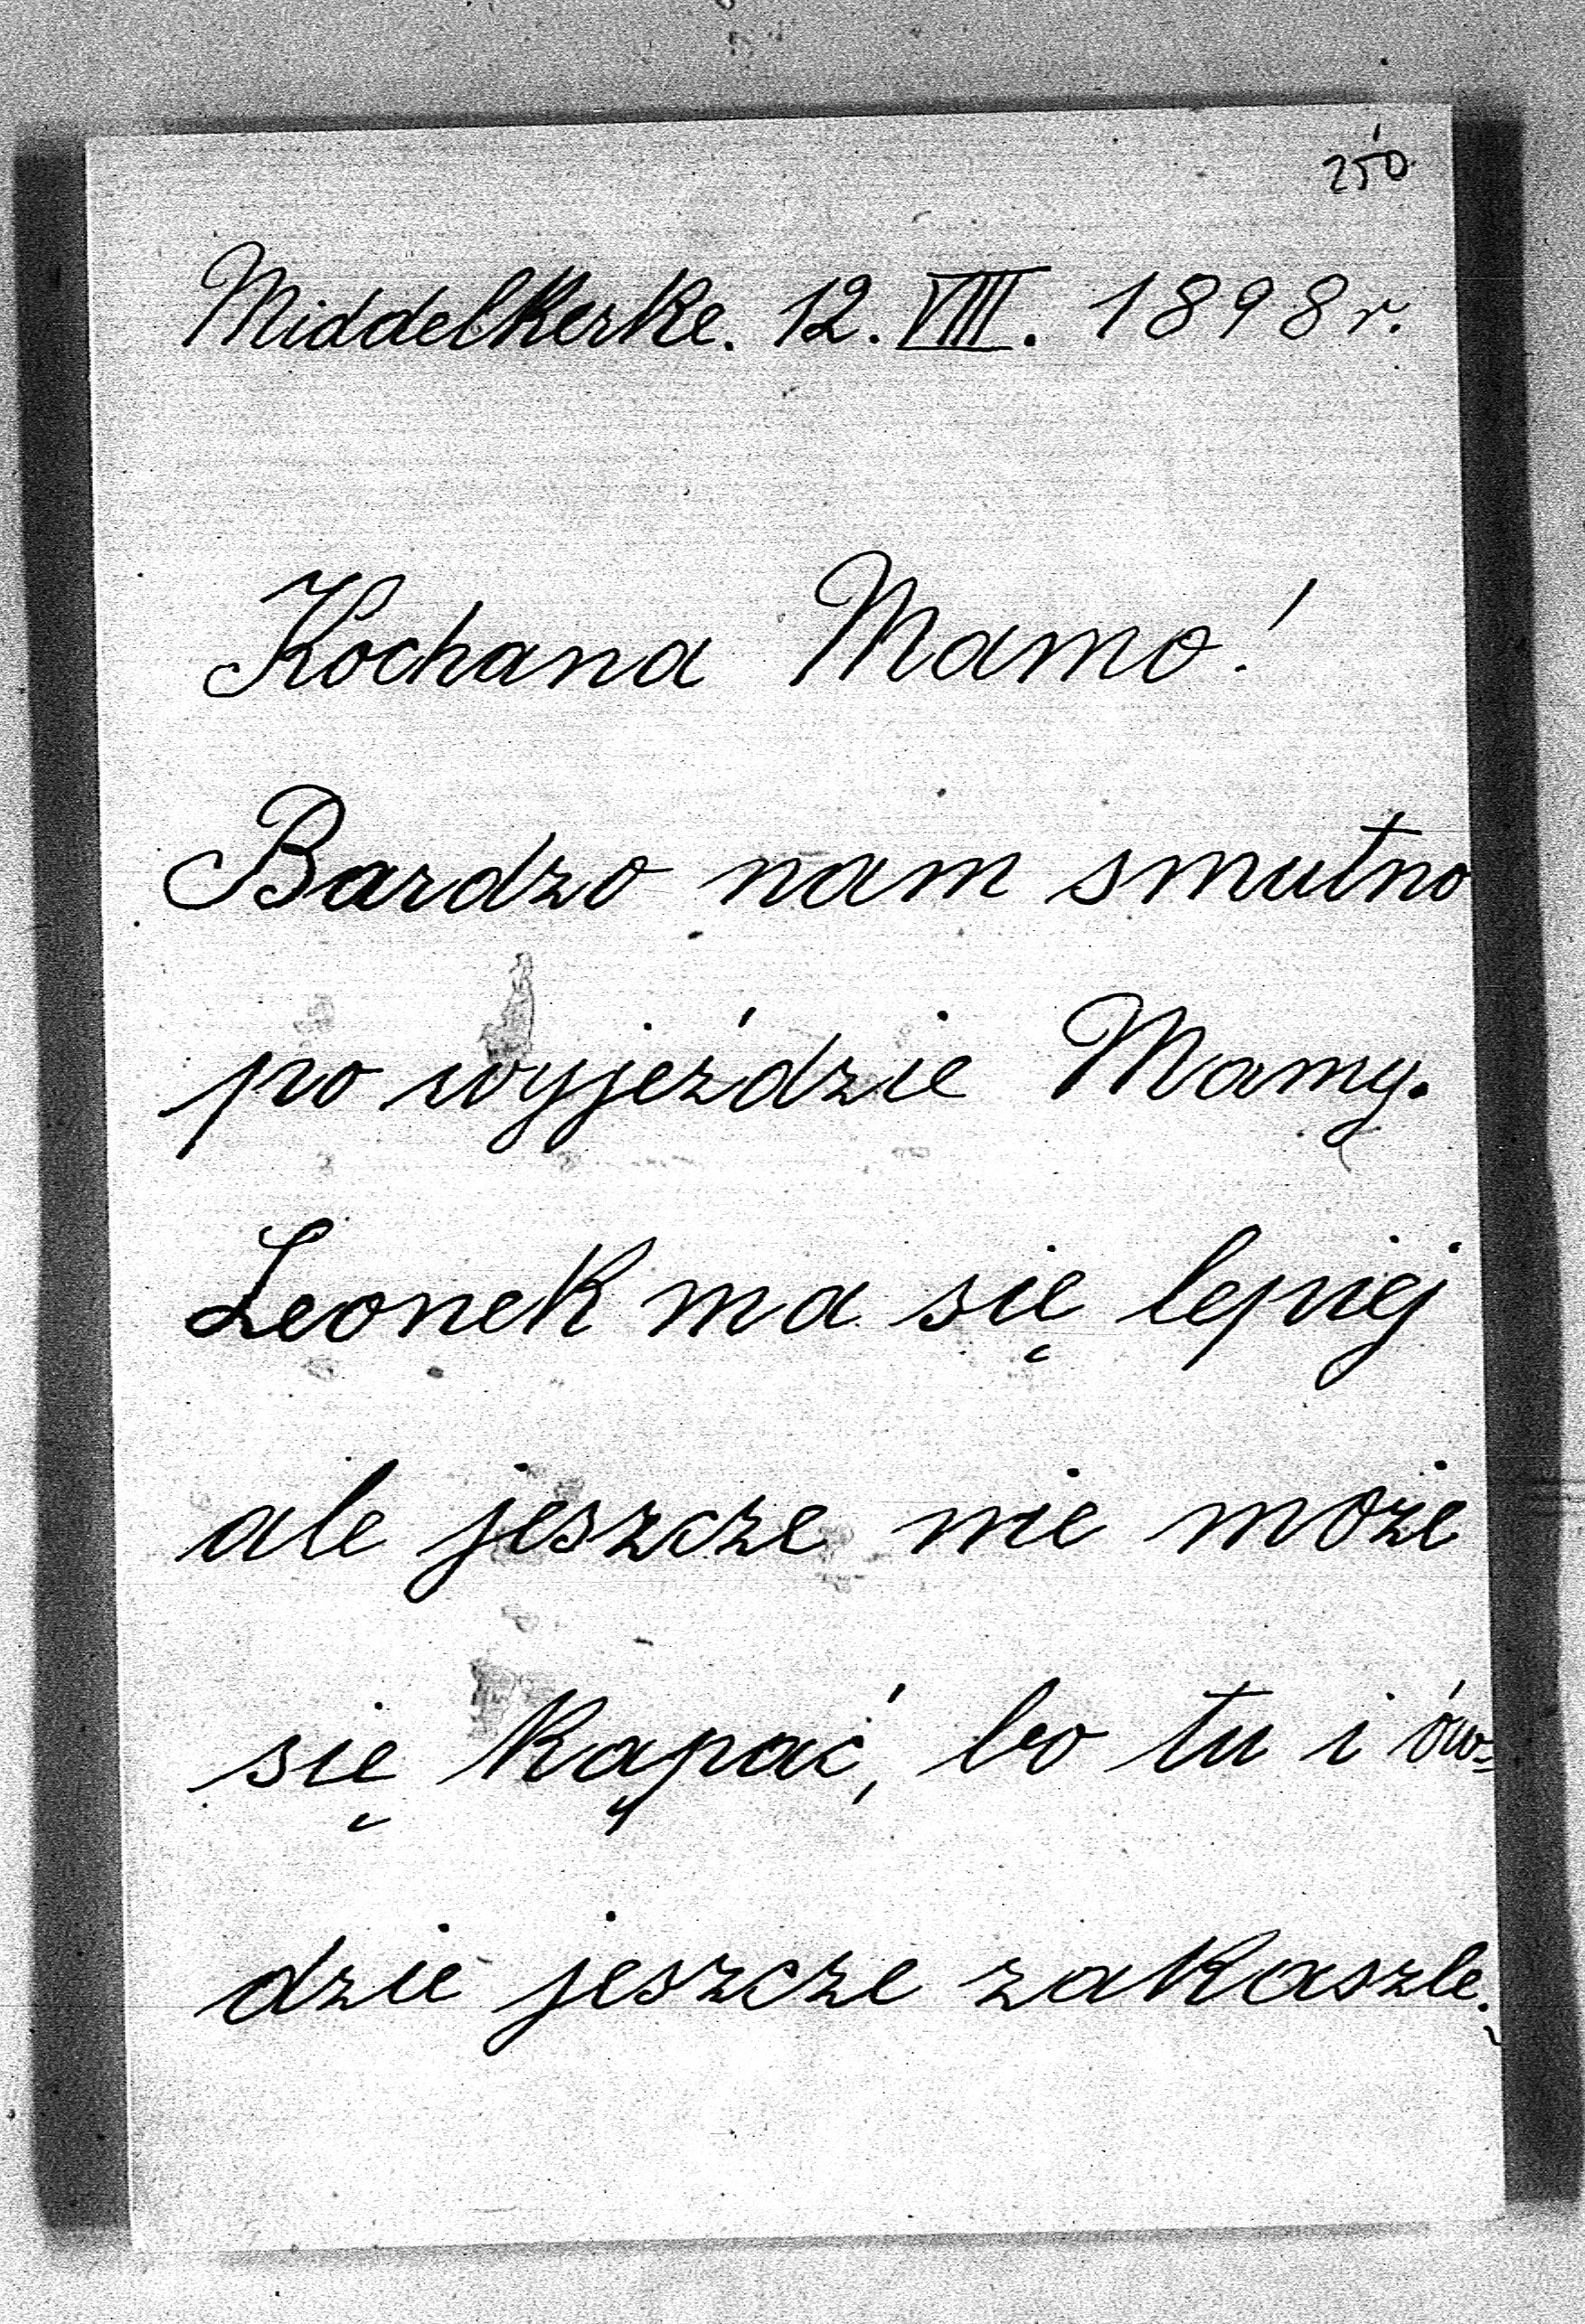 250
Middelkerke. 12. VIII. 1898 r.
Kochana Mamo!
Bardzo nam smutno
po wyjeździe Mamy.
Leonek ma się lepiej
ale jeszcze nie może
się kąpać, bo tu i ów-
dzie jeszcze zakaszle.